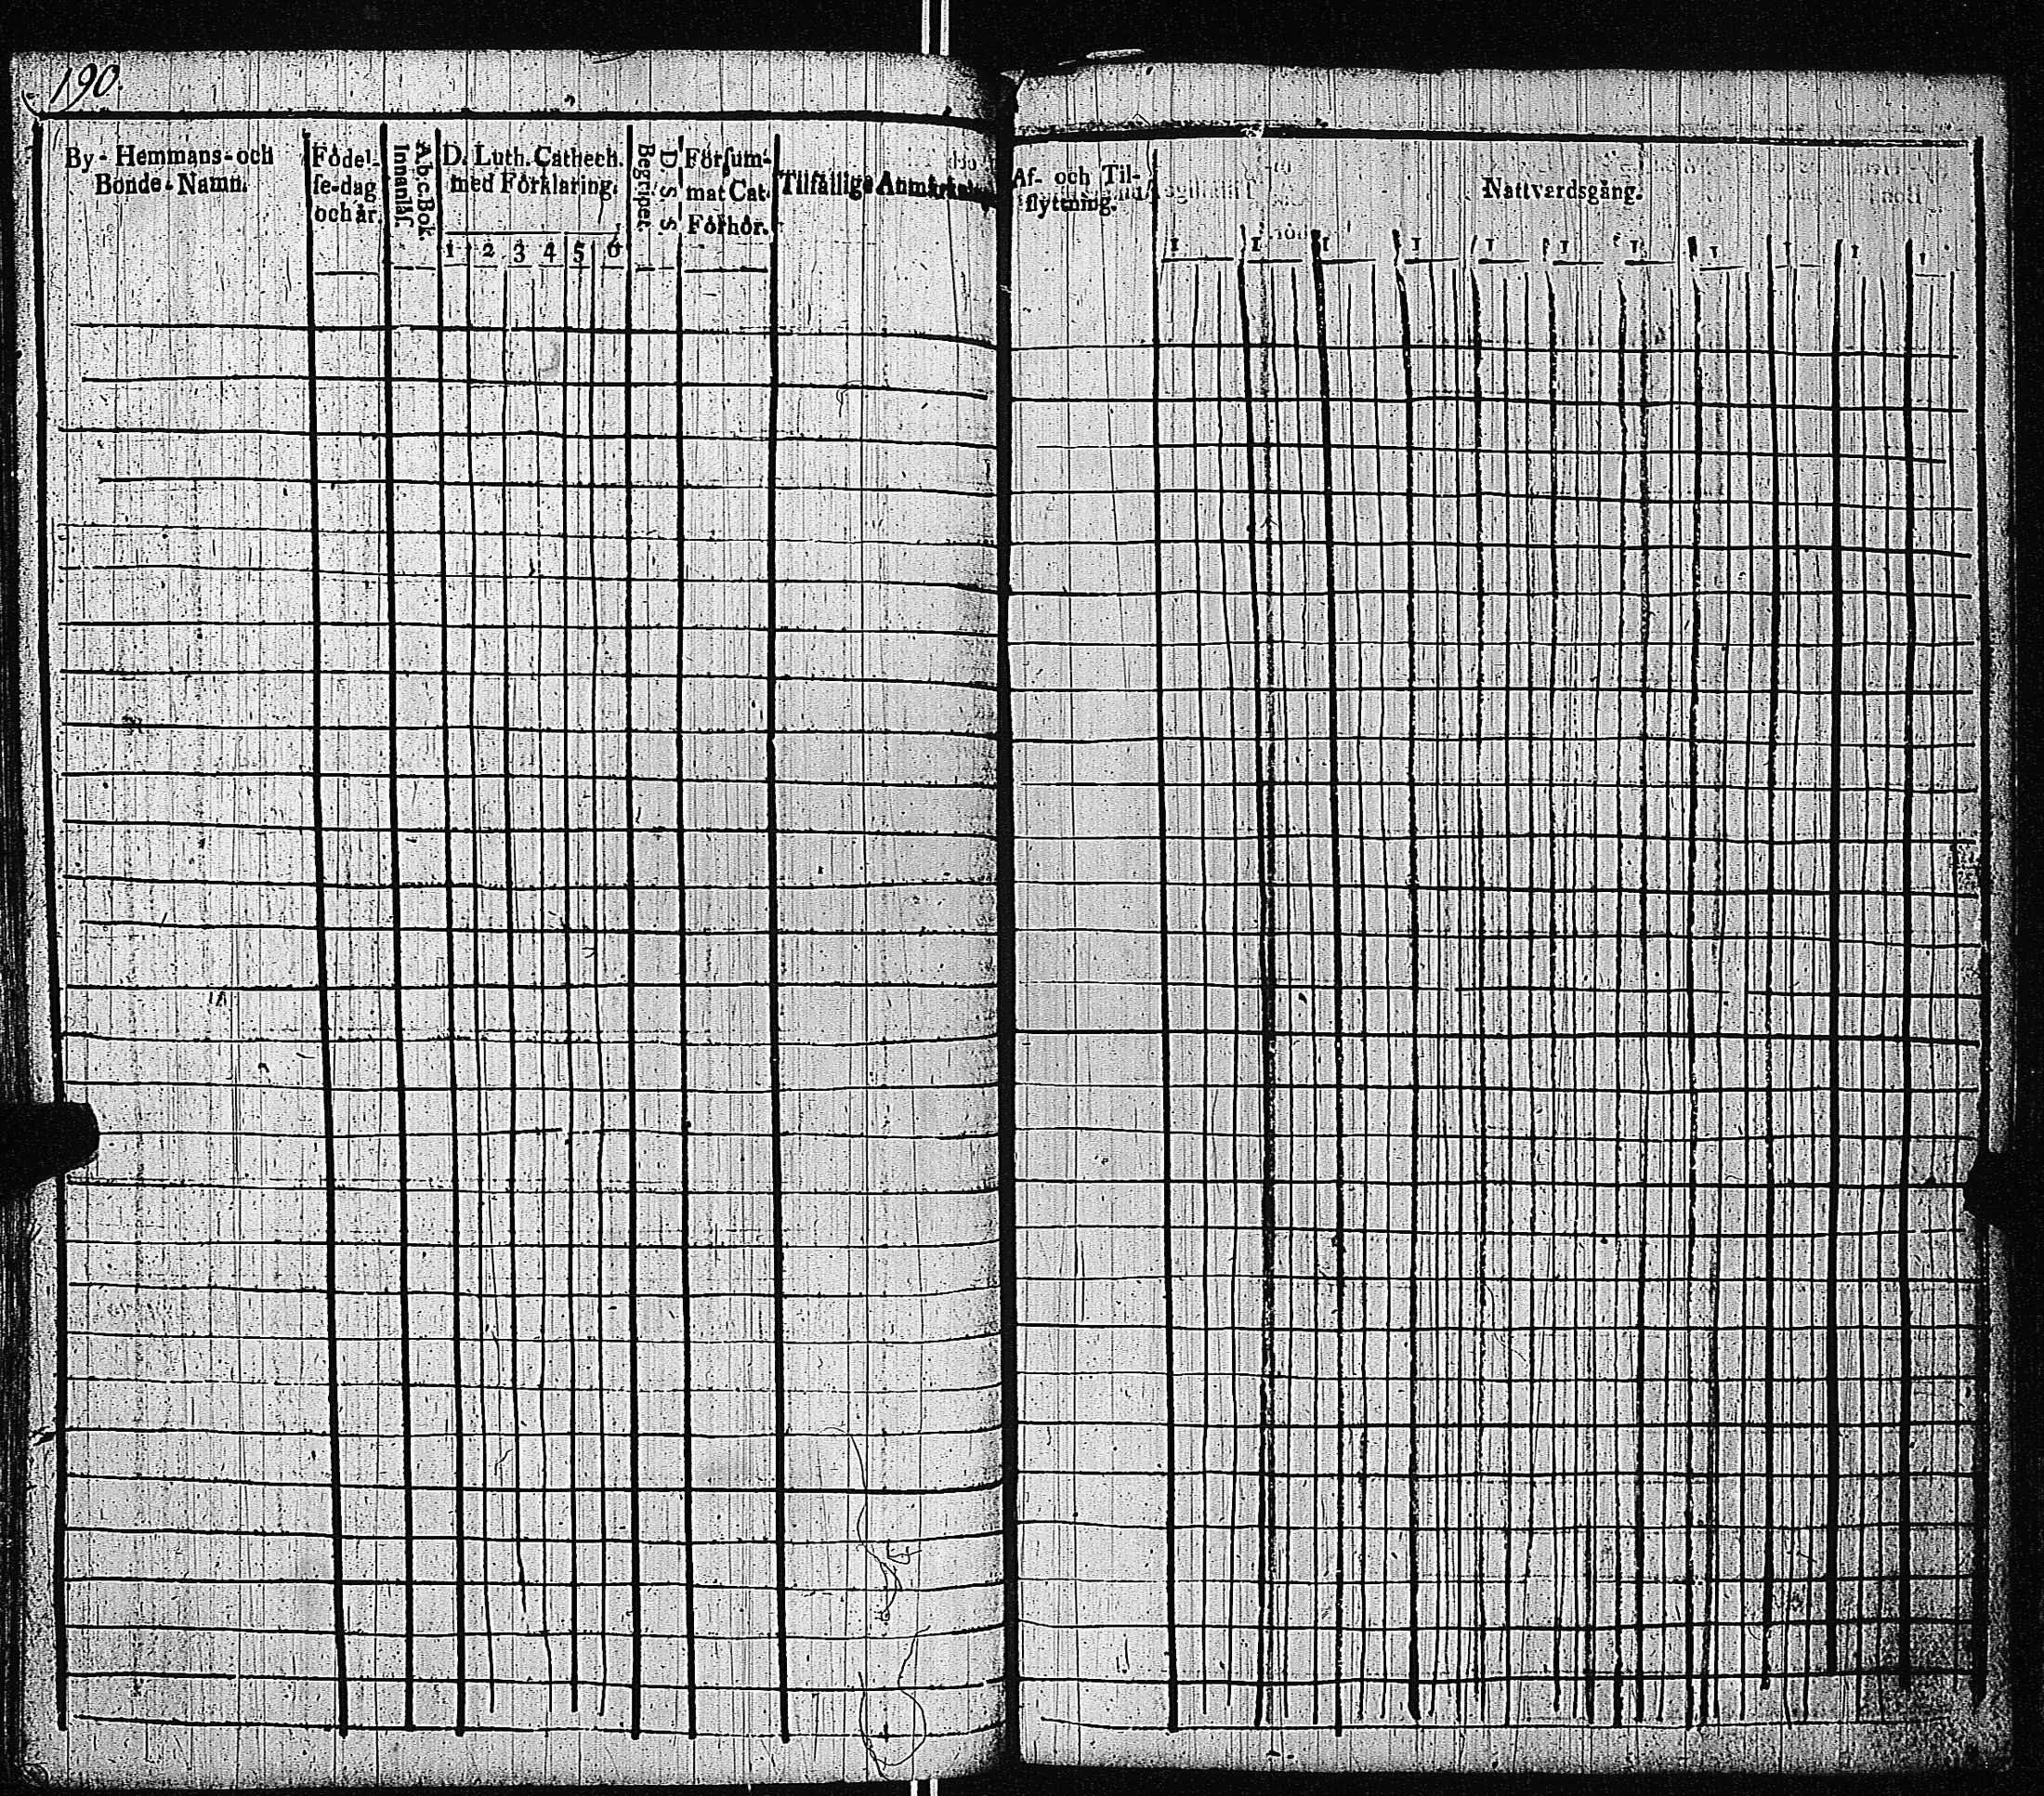 190.
By - Hemmans- och
Bonde-Namn.
Födel-
ſe-dag
och år.
A.b.c.Bok.
Innanläſ.
D. Luth. Cathech.
med Förklaring.
1 2 3 4 5 6
D. S. S.
Begriper.
Förſum-
mat Cat.
Förhör.
Tilfällige
Af- och Til-
flyttning.
Nattvardsgång.
1 1 1 1 1 1 1 1 1 1 1